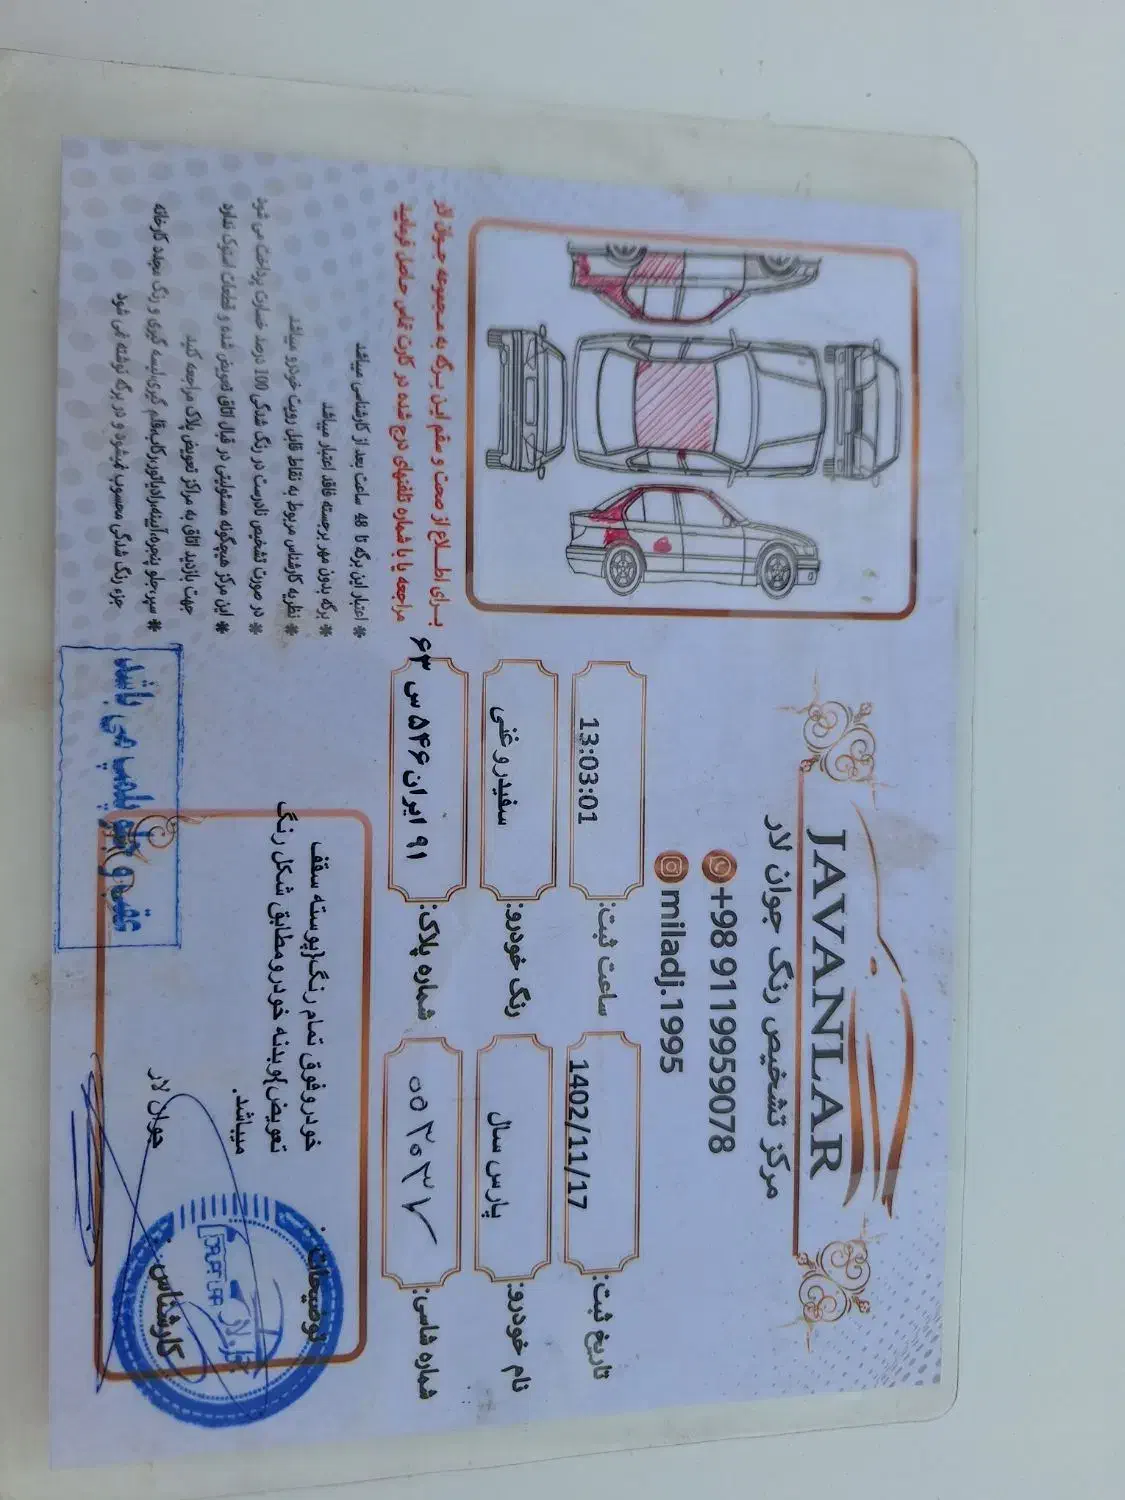 JAVANLAR
مرکز تشخیص رنگ جوان لار
+98 9119959078
miladj.1995
تاریخ ثبت: 1402/11/17
ساعت ثبت: 13:03:01
نام خودرو: پارس سال
رنگ خودرو: سفیدروغنی
شماره شاسی:
شماره پلاک: ۹۱ ایران ۵۴۶ س ۶۳
بــرای اطــلاع از صحت و سقم این بـرگه به مـجموعه جـوان لار
مراجعه یا با شماره تلفنهای درج شده در کارت تماس حاصل فرمایید
* اعتبار این برگه تا 48 ساعت بعد از کارشناسی میباشد
* برگه بدون مهر برجسته فاقد اعتبار میباشد
* نظریه کارشناس مربوط به نقاط قابل رویت خودرو میباشد
* در صورت تشخیص نادرست در رنگ شدگی 100 درصد خسارت پرداخت می شود
* این مرکز هیچگونه مسئولیتی در قبال اتاق تعویض شده و قطعات استوک ندارد
جهت بازدید اتاق به مراکز تعویض پلاک مراجعه کنید
* سپر،جلو پنجره،آیینه،رادیاتور،رکاب،قلم گیری،لیسه گیری و رنگ مجدد کارخانه
جزء رنگ شدگی محسوب نمیشود و در برگه نوشته نمی شود
توضیحات:
خودروفوق تمام رنگ{پوسته سقف
تعویض}وبدنه خودرومطابق شکل رنگ
میباشد.
کارشناس:
جوان لار
عقب و جلو پلمپ می باشد